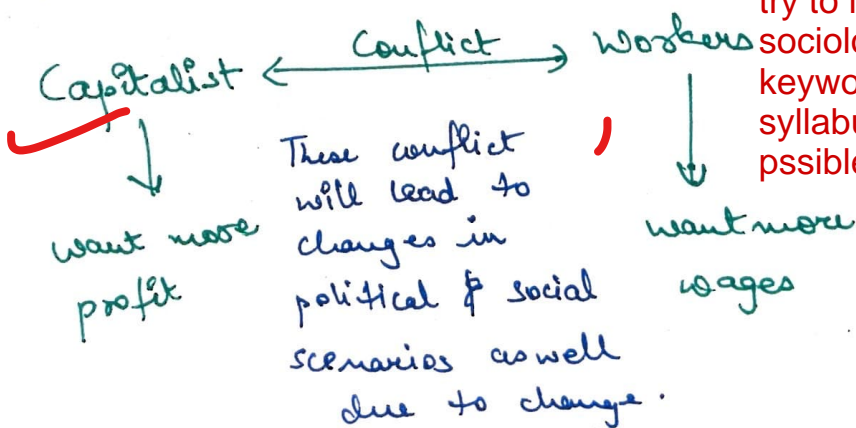 Capitalist Conflict Workers
want more
profit
These conflict
will lead to
changes in
political & social
scenarios as well
due to change.
want more
wages
try to
keywo
syllabu
pssible